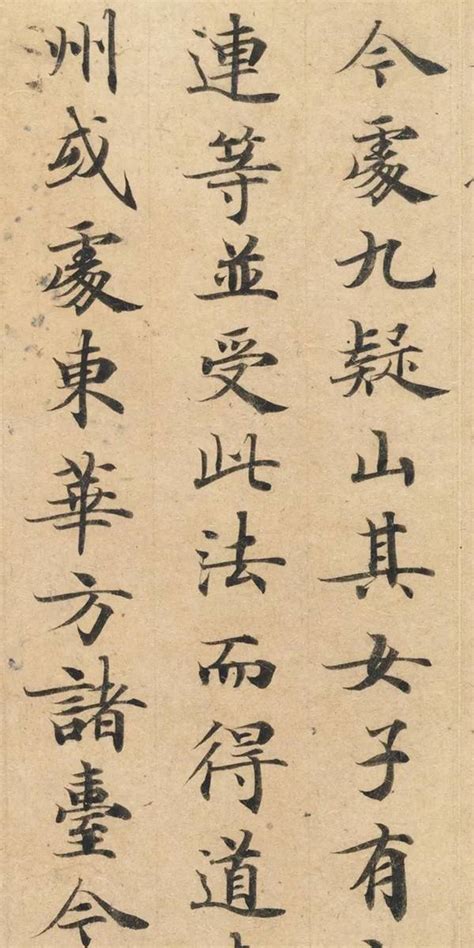 今處九疑山其女子有
連等並受此法而得道
州或處東華方諸臺今